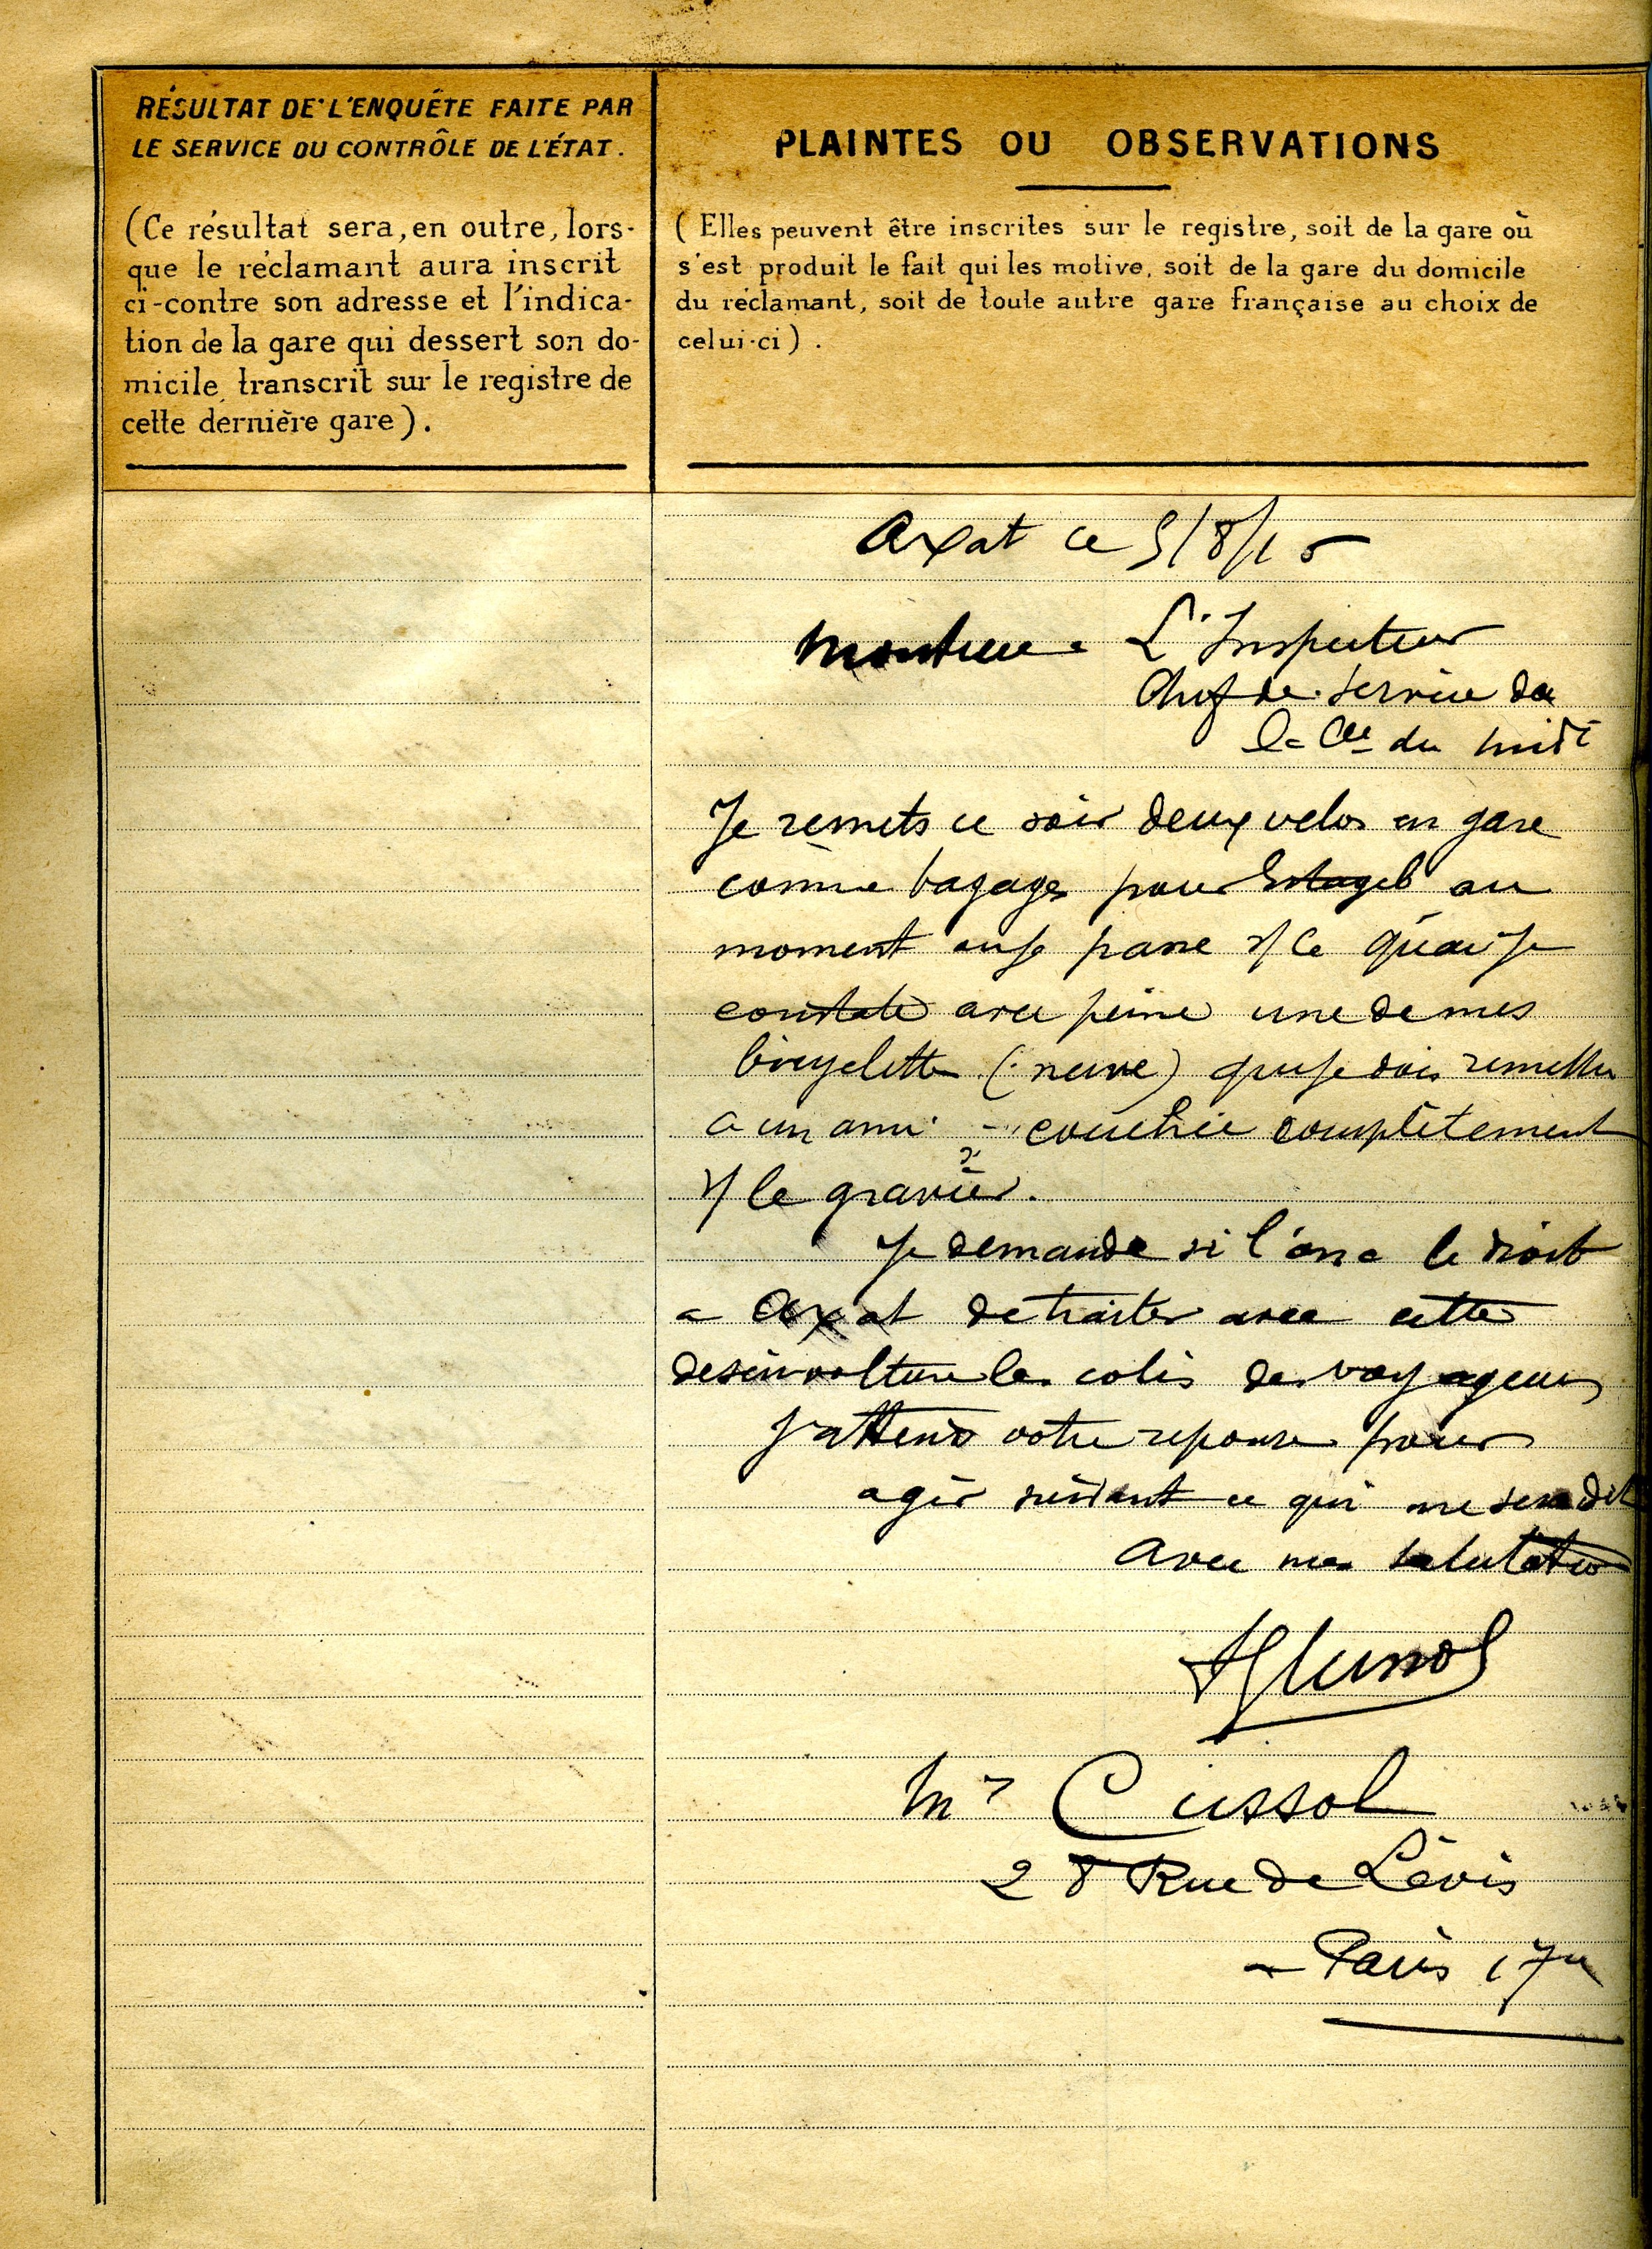 RÉSULTAT DE L'ENQUÊTE FAITE PAR
LE SERVICE DU CONTRÔLE DE L'ÉTAT.
(Ce résultat sera, en outre, lors-
que le réclamant aura inscrit
ci-contre son adresse et l'indica-
tion de la gare qui dessert son do-
micile, transcrit sur le registre de
cette dernière gare).
PLAINTES OU OBSERVATIONS
(Elles peuvent être inscrites sur le registre, soit de la gare où
s'est produit le fait qui les motive, soit de la gare du domicile
du réclamant, soit de toute autre gare française au choix de
celui-ci).
Axat ce 5/8/15
L'Inspecteur
Chef de service de
la Cie du midi
Je remets ce soir deux velos en gare
comme bagages pour Estagel au
moment ou je passe s/ le quai je
constate avec peine une de mes
bicyclette (neuve) que je dois remettre
a un ami - couchée complètement
s/ le gravier.
Je demande si l'on a le droit
a Axat de traiter avec cette
desinvolture les colis des voyageurs
J'attends votre reponse pour
agir suivant ce qui me sera dit
Avec mes salutations
Mr Cussol
28 Rue de Lévis
- Paris 17e